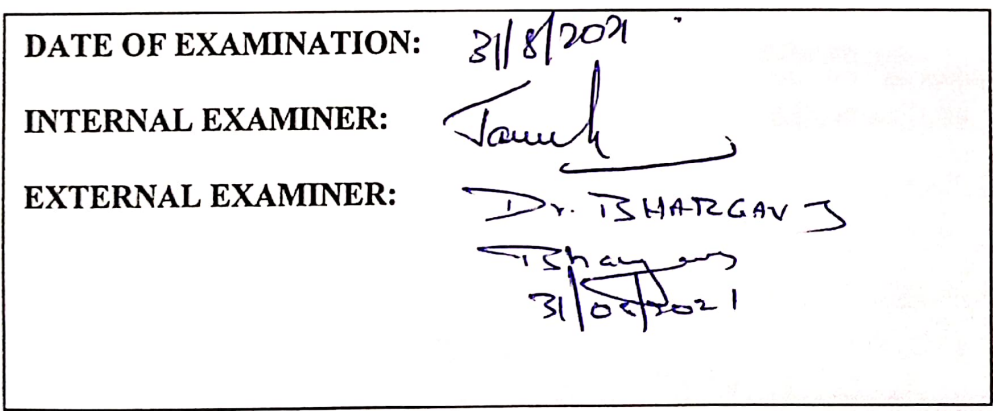 DATE OF EXAMINATION: 31/8/2021
INTERNAL EXAMINER:
EXTERNAL EXAMINER: Dr. BHARGAV J
Bhargav
31/08/2021